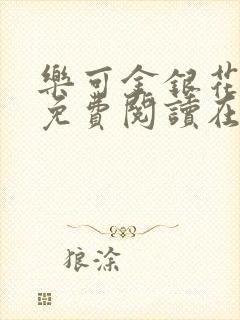 樂可金銀花
免費閱讀在
狼涂